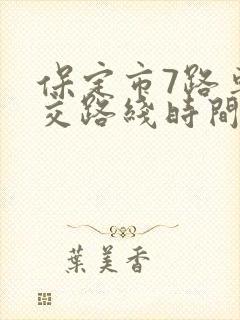 保定市7路
交路綫時間
葉美香